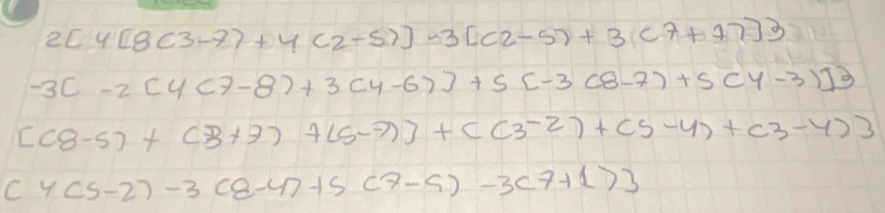 2[4[8(3-7)+4(2-5)]-3[(2-5)+3(7+1)]}
-3[-2(4(7-8)+3(4-6)]+5[-3(8-7)+5(4-3)]}
[(8-5)+(3+7)+(5-7)]+((3-2)+(5-4)+(3-4)}
(4(5-2)-3(8-4)+5(7-5)-3(7+1)}